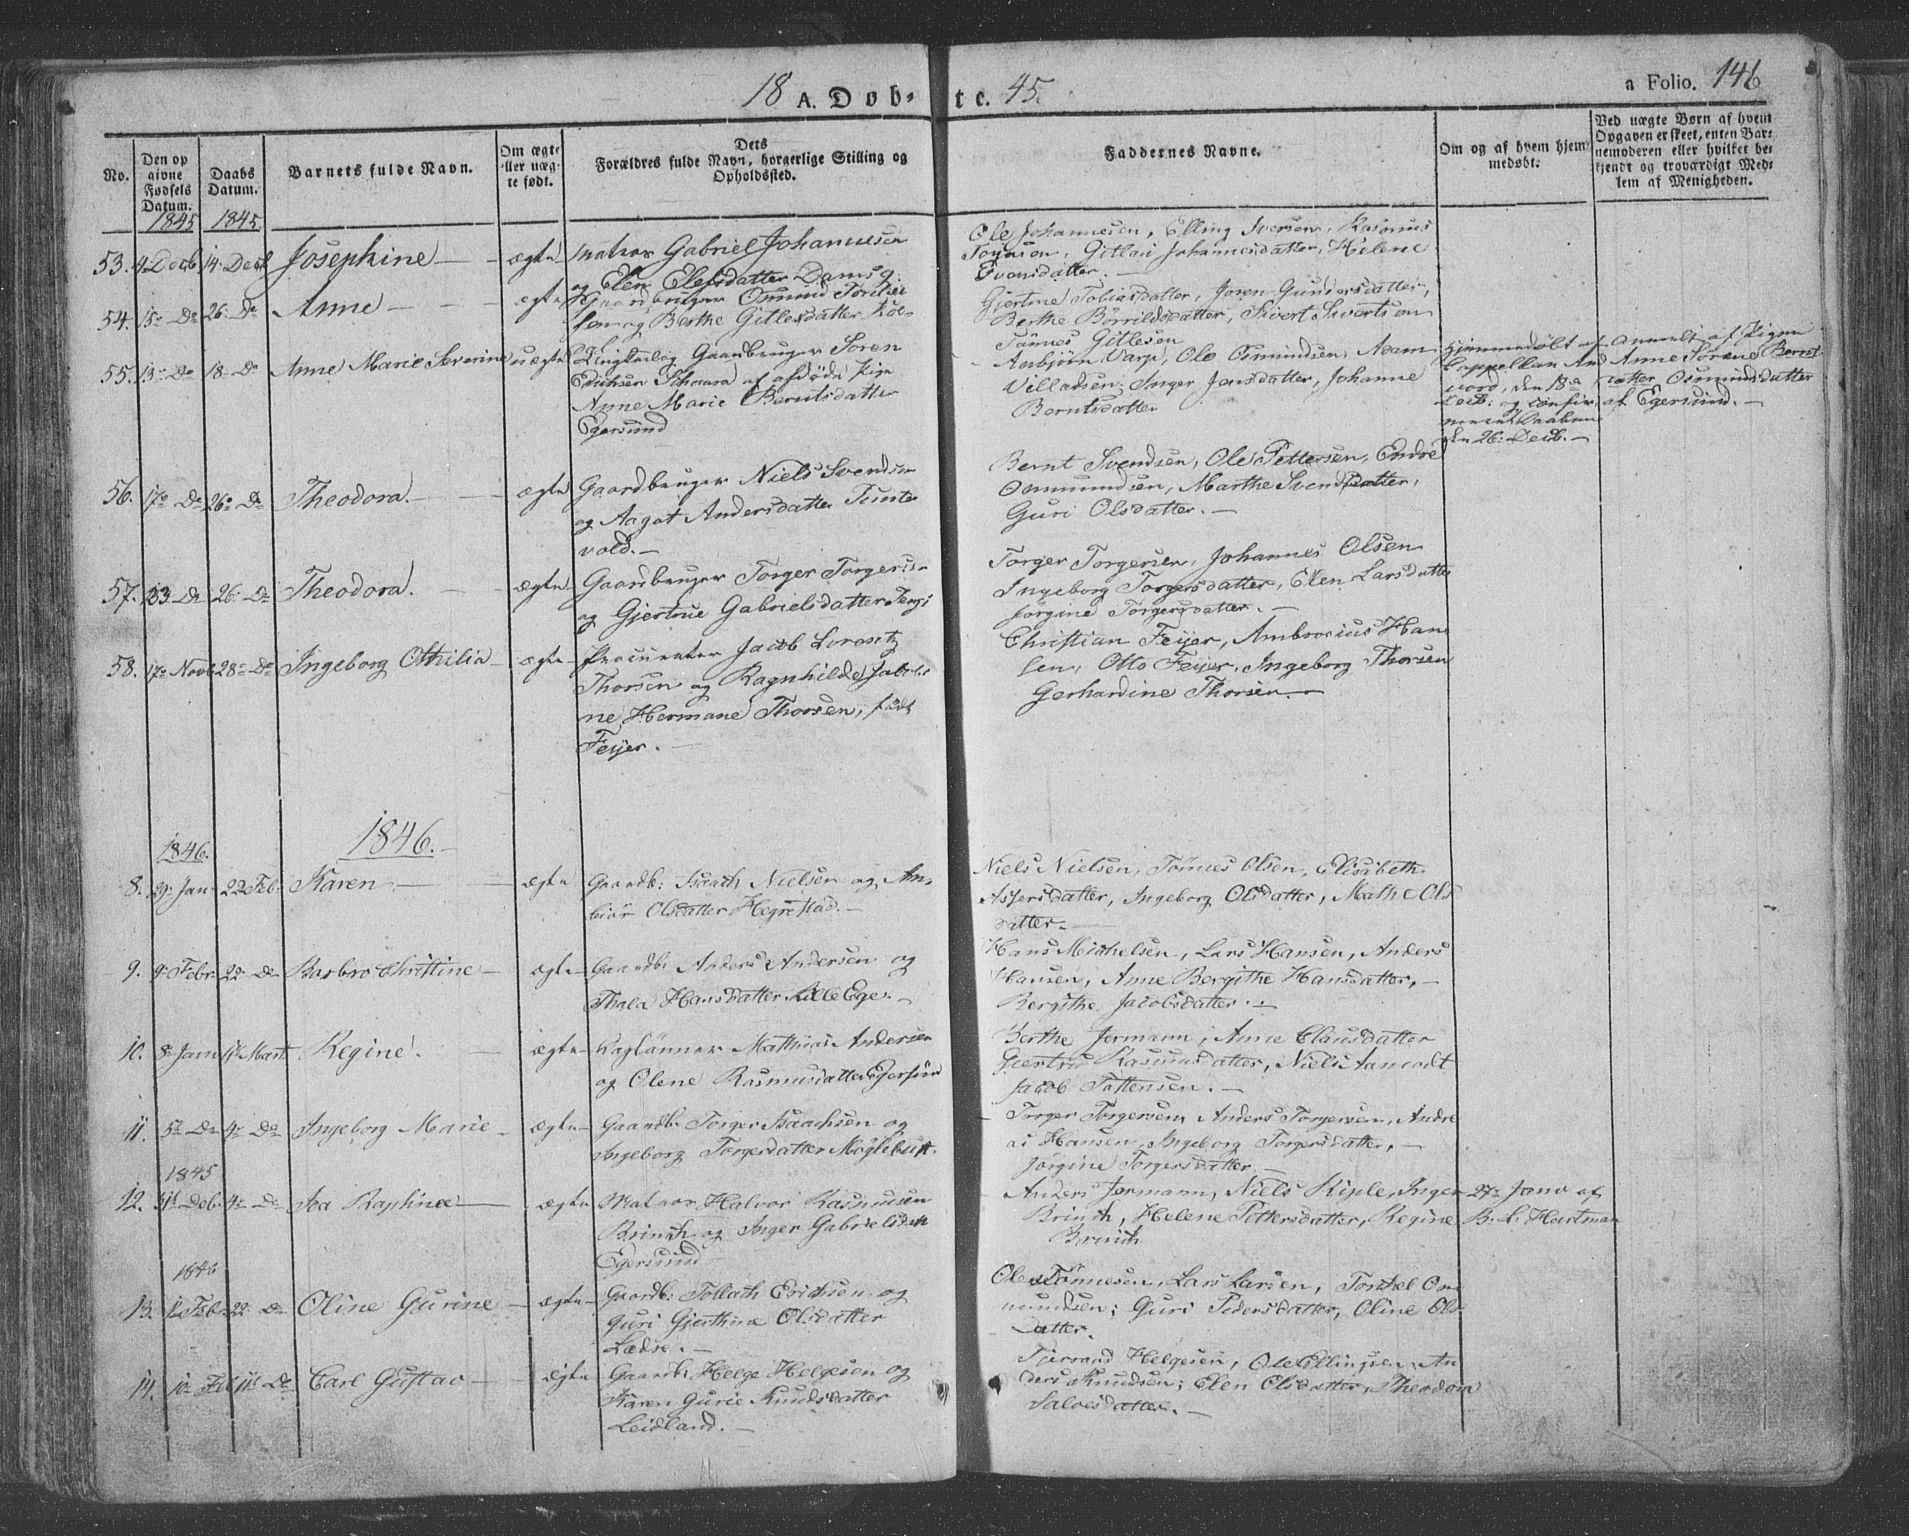 18 A. Døb- te. 45.
a Folio. 146
No.
Den op
givne
Fødsels
Datum.
Daabs
Datum.
Barnets fulde Navn.
Om ægte
eller uæg-
te født.
Dets
Forældres fulde Navn, borgerlige Stilling og
Opholdssted.
Faddernes Navne.
Om og af hvem hjem-
medøbt.
Ved uægte Børn af hvem
Opgaven er skeet, enten Bar-
nemoderen eller hvilket be-
kjendt og troværdigt Med-
lem af Menigheden.
1845 1845
53. 4 Decb 14 Decb Josephine ægte Matros Gabriel Johannesen
og Elen Elefsdatter
Ole Johannesen, Elling Svensen, Rasmus
Johannesdatter, Helene
Svensdatter.
54. 15 Do 26 Do Anne ægte Gaardbruger Osmund
sen og Berthe Gitlesdatter
Gjertine Tobiasdatter, Joren Gundersdatter,
Berthe Børrildsdatter, Sivert Sivertsen
Tønnes Gitlesen
55. 13 Do 18 Do Anne Marie Severine uægte Ungkarl og Gaardbruger Soren
Erichsen Schaara af afdøde Pige
Anne Marie Berntsdatter
Egersund
Anbjørn Varp, Ole Osmundsen, Adam
Villadsen, Inger Jensdatter, Johanne
Berntsdatter
Hjemmedøbt af
Cappellan
den 18de
Decb: og confir
meret Daaben
den 26 Decb.
anmeldt af Pigen
Anne Sørene Bernt
datter Osmundsdatter
af Egersund.
56. 17 Do 26 Do Theodora. ægte Gaardbruger Niels Svendsen
og Aagot Andersdatter Tuste
vold.
Bernt Svendsen, Ole Pettersen, Endre
Osmundsen, Marthe Svendsdatter,
Guri Olsdatter.
57. 13 Do 26 Do Theodora. ægte Gaardbruger Torger Torgersen
og Gjertrue Gabrielsdatter
Torger Torgersen, Johannes Olsen
Ingeborg Torgersdatter, Elen Larsdatter
Jørgine Torgersdatter.
58. 17 Novb 28 Do Ingeborg Othilia ægte Procurator Jacob Lorentz
Thorsen og Ragnhilde Jacobi
ne Hermane Thorsen, født
Feyer.
Christian Feyer, Ambrosius Han
sen, Otto Feyer, Ingeborg Thorsen
Gerhardine Thorsen.
1846. 1846.
8. 29 Jan 22 Feb: Karen ægte Gaardb: Isaach Nielsen og An-
biør Olsdatter Hegrestad.
Niels Nielsen, Tønnes Olsen, Elisabeth
Asgersdatter, Ingeborg Olsdatter, Mathe Ols
datter.
9. 9 Febr 22 Do Barbro Christine ægte Gaardb: Anders Andersen og
Thala Hansdatter Lille Ege.
Hans Michelsen, Lars Hansen, Anders
Hansen, Anne Bergithe Hansdatter,
Bergithe Jacobsdatter.
10. 8 Janu 1 Mart Regine. ægte Daglønner Mathias Andersen
og Olene Rasmusdatter Egersund
Berthe Jermann, Anne Clausdatter
Gjertru Rasmusdatter, Niels Aamodt
Jacob Tollensen.
11. 5 Do 4 Do Ingeborg Marie ægte Gaardb: Torger Isaachsen og
Ingeborg Torgersdatter Møglebust.
Torger Torgersen, Anders Torgersen, Andre
as Hansen, Ingeborg Torgersdatter,
Jørgine Torgersdatter.
1845
12. 11 Deb. 4 Do Ida Raphine ægte Matros Halvor Rasmusen
Brinch og Inger Gabrielsdatt
Egersund
Anders Jermann, Niels Kiple, Inger
Brinch, Helene Pettersdatter, Regine
Brinch
27 Janv af
B. L. Hartman
1846
13. 1 Febr 22 Do Oline Gurine ægte Gaardb: Tollach Erichsen og
Guri Gjerthine Olsdatter
Lædre.
Ole Tønnesen, Lars Larsen, Torkel Os
mundsen; Guri Pedersdatter, Oline Ols
datter.
14. 10 Feb 11 Do Carl Gustav ægte Gaardb: Helge Helgesen og
Karen Gurie Knudsdatter
Leidland.
Tjerand Helgesen, Ole Ellingsen, An
ders Knudsen; Elen Olsdatter, Theodora
Salvesdatter.